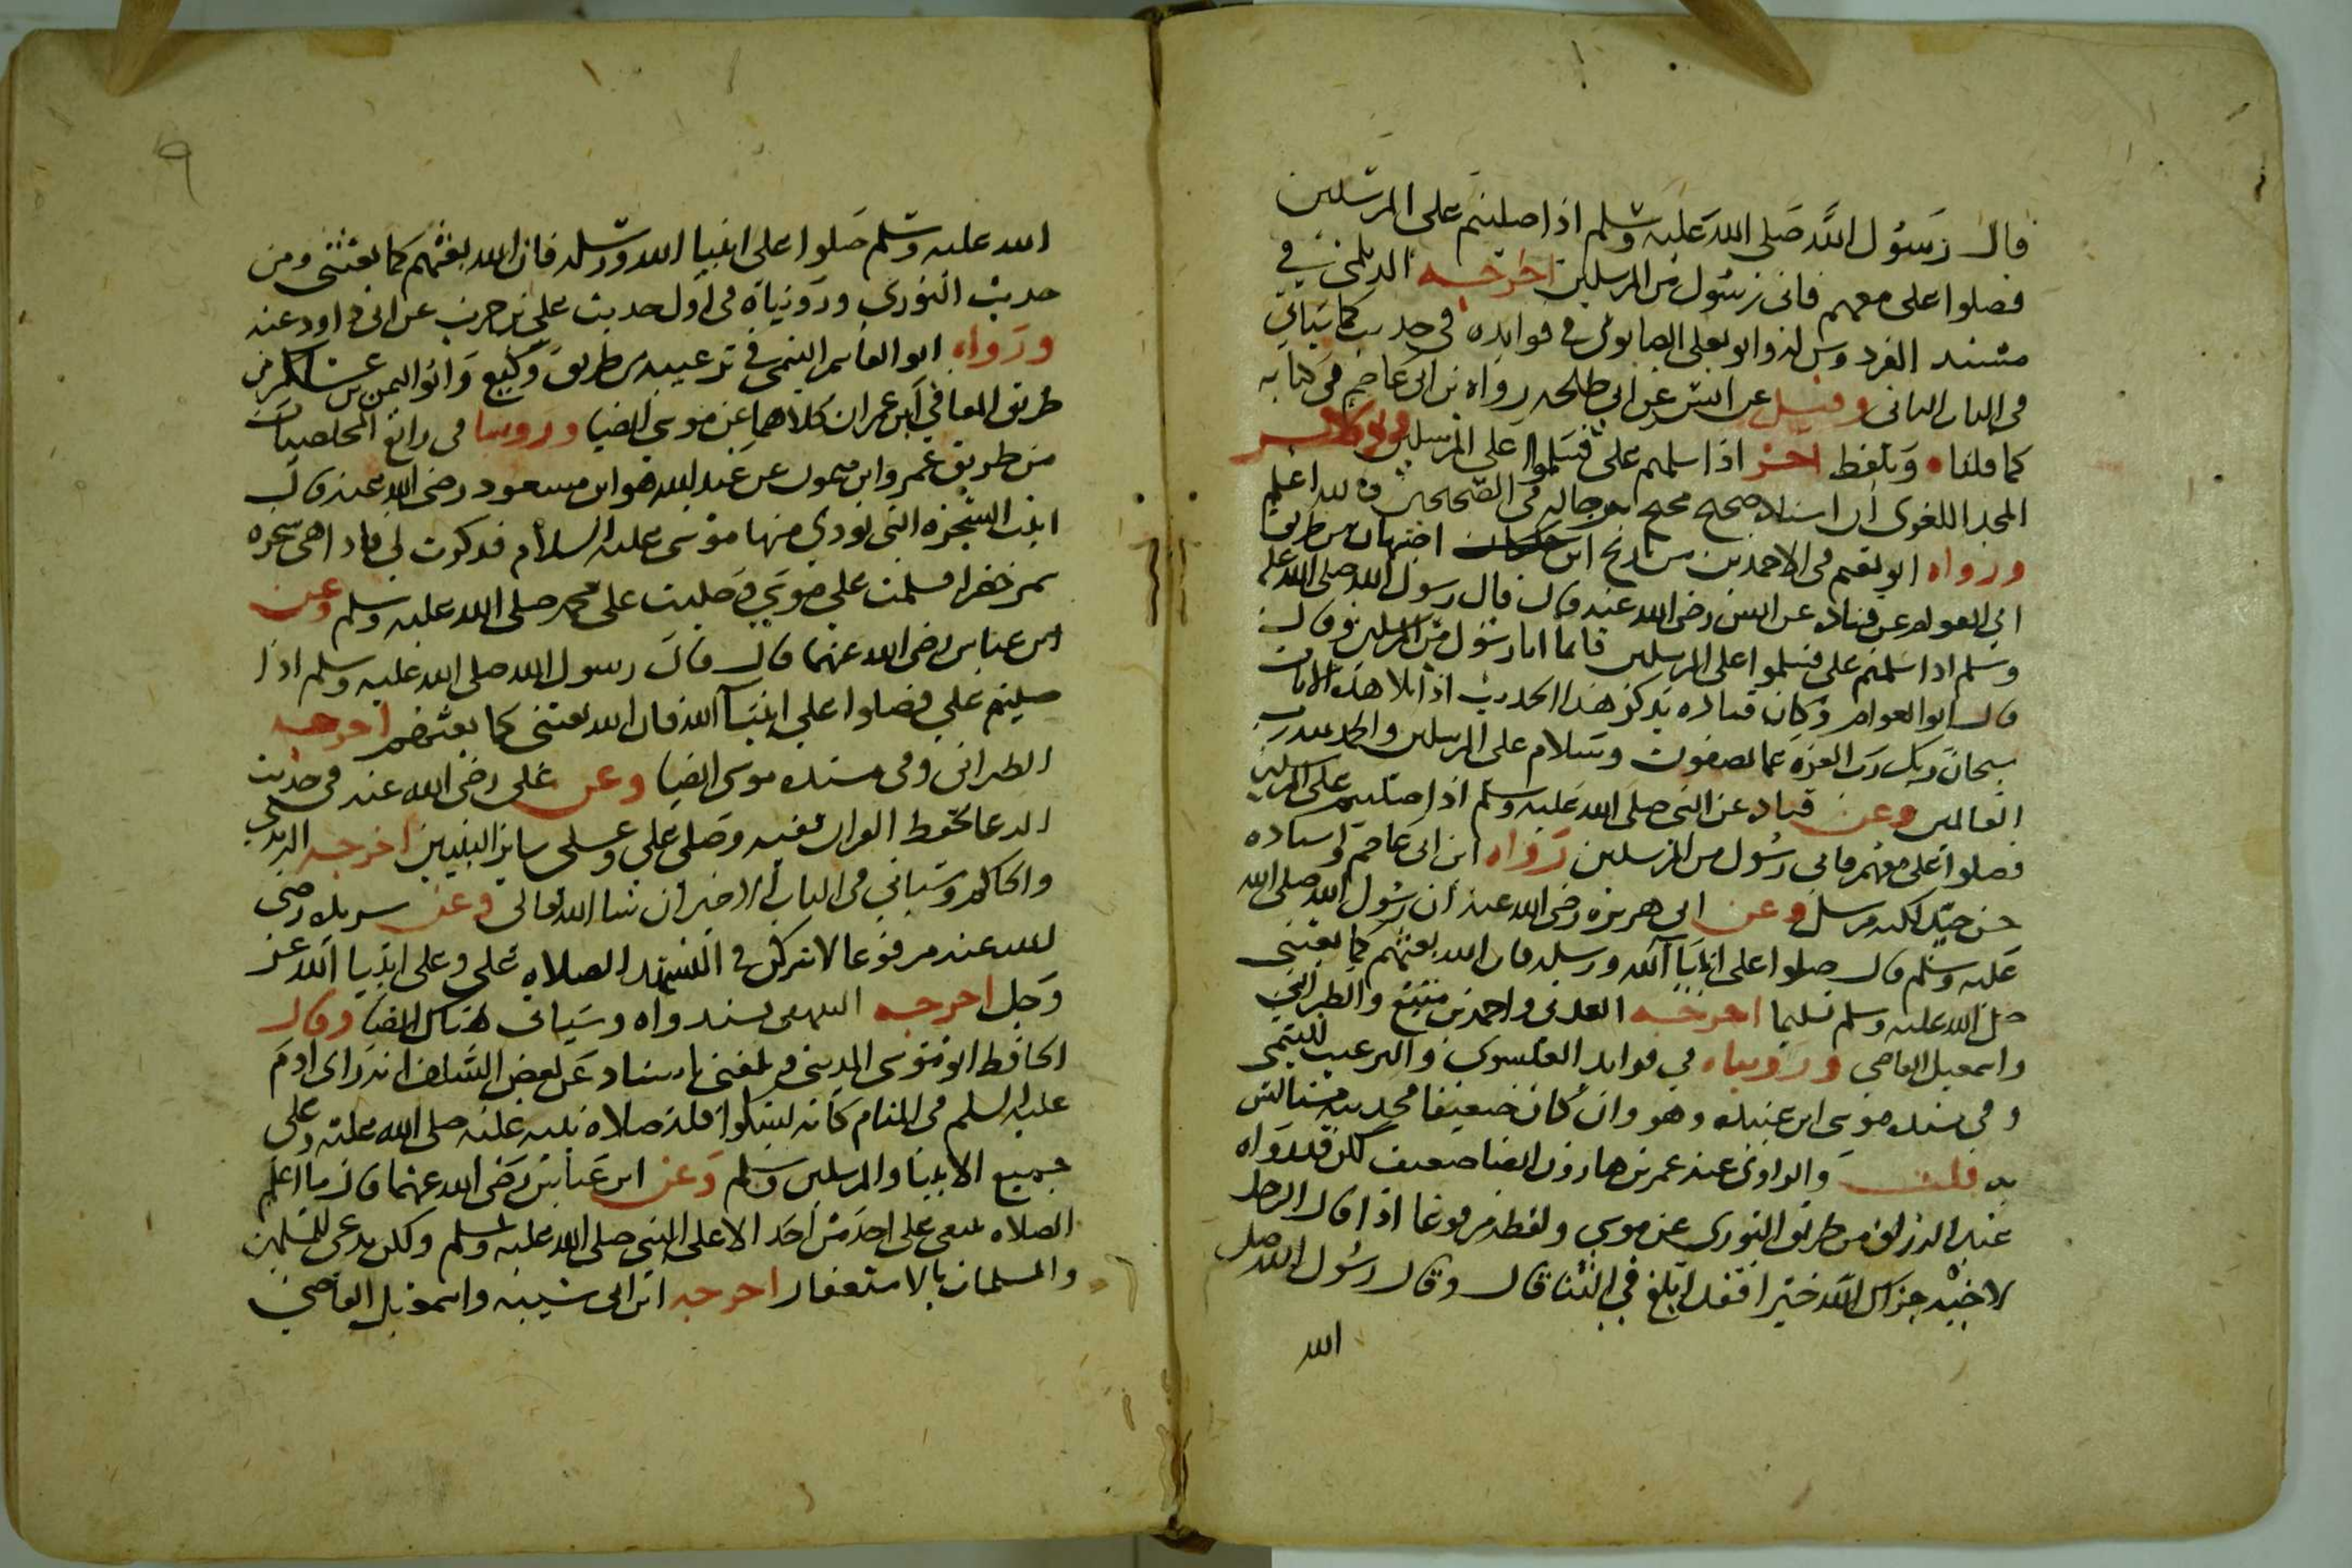 قال رسول الله صلى الله عليه وسلم اذا صليتم على المرسلين
فصلوا على معهم فانى رسول من المرسلين اخرجه الديلمى في
مسند الفردوس له وابو يعلى الصابونى في فوايده في حديث كما سياتي
في الباب الثاني وقيل عن انس عن ابي طلحه رواه بن ابى عاصم في كتابه
كما قلناه وبلفظ اخر اذا سلمتم على فسلموا على المرسلين وذكر
المجد اللغوى ان اسناده صحيح محتج برجاله في الصحيحين والله اعلم
ورواه ابو نعيم في الاحمدين من تاريخ اصبهان من طريق
ابي العوام عن قتاده عن انس رضى الله عنه قال قال رسول الله صلى الله عليه
وسلم اذا سلمتم على فسلموا على المرسلين فانما انا رسول من المرسلين وقال
قال ابو العوام وكان قتاده يذكر هذا الحديث اذا تلا هذه الايات
سبحان ربك رب العزه عما يصفون وسلام على المرسلين والحمد لله رب
العالمين وعن قتاده عن النبى صلى الله عليه وسلم اذا صليتم على المرسلين
فصلوا على معهم فانى رسول من المرسلين رواه ابن ابى عاصم واسناده
حسن جيد لكنه مرسل وعن ابى هريره رضى الله عنه ان رسول الله صلى الله
عليه وسلم قال صلوا على انبيا الله ورسله فان الله بعثهم كما بعثنى
صلى الله عليه وسلم تسليما اخرجه العدنى واحمد بن منيع والطبرانى
واسمعيل القاضى ورويناه في فوايد العيسوى والترغيب للتيمى
وفى سنده موسى ابن عبيده وهو وان كان ضعيفا فحديثه يستانس
به قلت والراوى عنه عمر بن هارون ايضا ضعيف لكن قد رواه
عبد الرزاق من طريق الثورى عن موسى ولفظه مرفوعا اذا قال الرجل
لاخيه جزاك الله خيرا فقد ابلغ في الثنا قال وقال رسول الله صلى
الله
٩
الله عليه وسلم صلوا على انبيا الله ورسله فان الله بعثهم كما بعثنى ومن
حديث الثورى ورويناه في اول حديث على بن حرب عن ابى داود عنه
ورواه ابو القاسم التيمى في ترغيبه من طريق وكيع وابو اليمن بن عساكر من
طريق المعافي ابن عمران كلاهما عن موسى ايضا وروينا في رابع المخلصيات
من طريق عمرو ابن ميمون عن عبد الله هو ابن مسعود رضى الله عنه قال
اتيت الشجره التى نودي منها موسى عليه السلام فذكرت لى فاذا هى شجره
سمر خضرا فسلمت على موسى وصليت على محمد صلى الله عليه وسلم وعن
ابن عباس رضى الله عنهما قال قال رسول الله صلى الله عليه وسلم اذا
صليتم على فصلوا على انبيا الله فان الله بعثنى كما بعثهم اخرجه
الطبرانى وفى سنده موسى ايضا وعن على رضى الله عنه في حديث
الدعا لحفظ القران ففيه وصلى على وعلى ساير النبيين اخرجه الترمذى
والحاكم وسياتي في الباب الاخير ان شا الله تعالى وعن بريده رضى
الله عنه مرفوعا لا تتركن في التشهد الصلاه على وعلى انبيا الله عز
وجل اخرجه البيهقى بسند واه وسياتى هناك ايضا وقال
الحافظ ابو موسى المدينى وبلغنى باسناد عن بعض السلف انه راى ادم
عليه السلم في المنام كانه يشكوا قلة صلاة بنيه عليه صلى الله عليه وعلى
جميع الانبيا والمرسلين وسلم وعن ابن عباس رضى الله عنهما قال ما اعلم
الصلاه تنبغى على احد من احد الا على النبى صلى الله عليه وسلم ولكن يدعى للمسلمين
والمسلمات بالاستغفار اخرجه ابن ابى شيبه واسمعيل القاضى